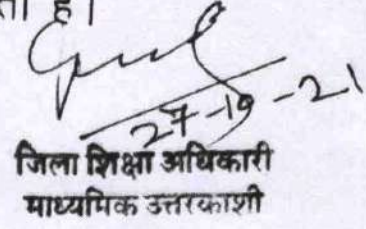 है।
27-10-21
जिला शिक्षा अधिकारी
माध्यमिक उत्तरकाशी